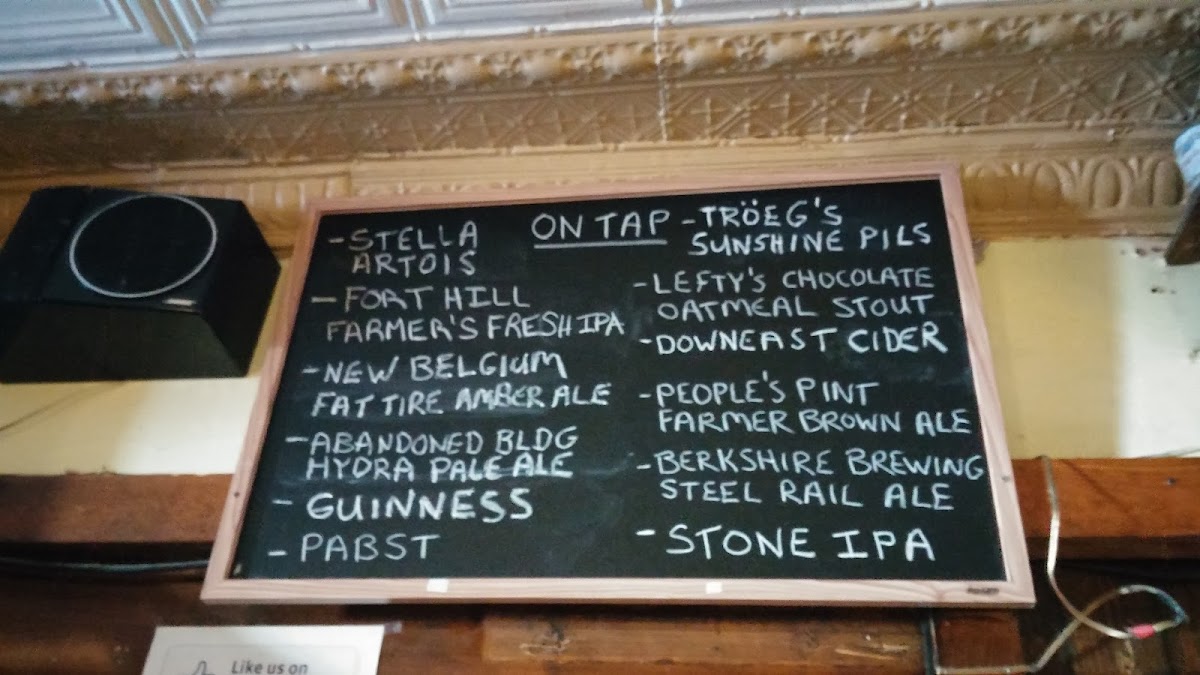 ON TAP
-STELLA
ARTOIS
-FORT HILL
FARMER'S FRESH IPA
-NEW BELGIUM
FAT TIRE AMBER ALE
-ABANDONED BLDG
HYDRA PALE ALE
-GUINNESS
-PABST
-TRÖEG'S
SUNSHINE PILS
-LEFTY'S CHOCOLATE
OATMEAL STOUT
-DOWNEAST CIDER
-PEOPLE'S PINT
FARMER BROWN ALE
-BERKSHIRE BREWING
STEEL RAIL ALE
-STONE IPA
Like us on